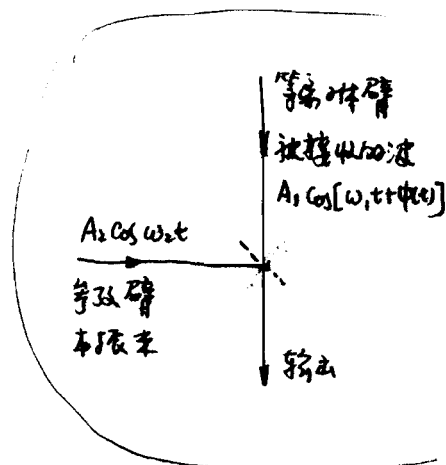 等离子体臂
被接收的波
A₁ cos[ω₁t+φ(t)]
A₂ cos ω₂t
参考臂
本振来
输出